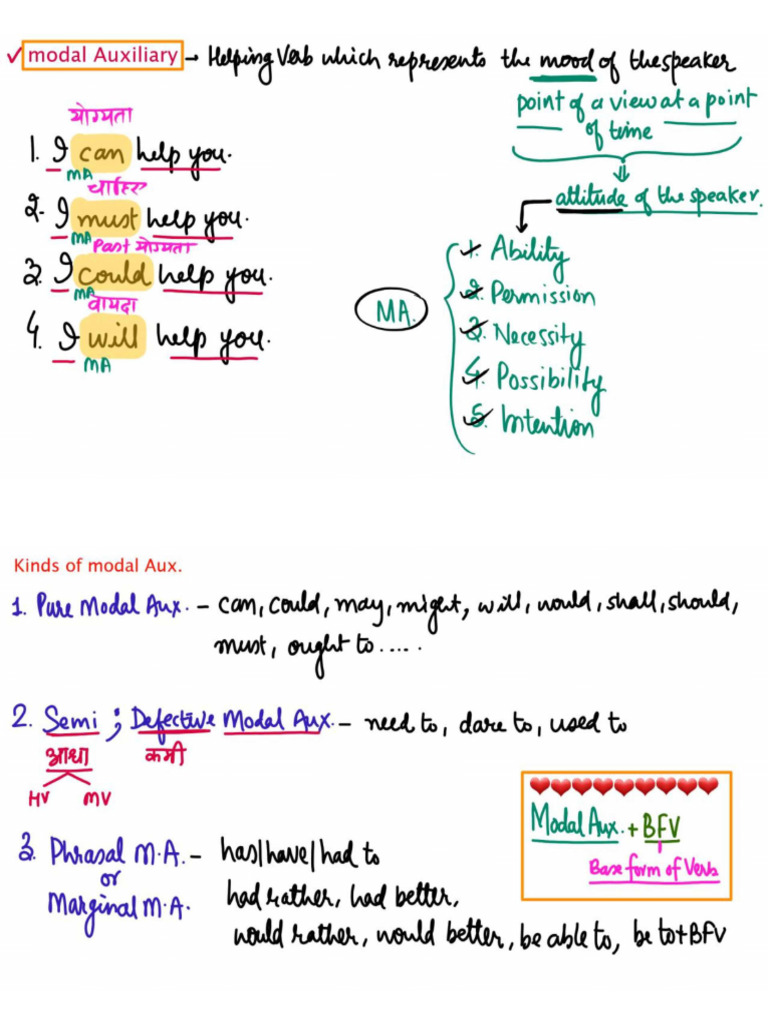 ✓ modal Auxiliary → Helping Verb which represents the mood of the speaker
point of a view at a point
of time
⇓
attitude of the speaker.
योग्यता
1. I can help you.
MA
चाहिए
2. I must help you.
MA
Past योग्यता
3. I could help you.
MA
वायदा
4. I will help you.
MA
MA.
1. Ability
2. Permission
3. Necessity
4. Possibility
5. Intention
Kinds of modal Aux.
1. Pure Modal Aux. - can, could, may, might, will, would, shall, should,
must, ought to.....
2. Semi ; Defective Modal Aux. - need to, dare to, used to
आधा कमी
HV MV
❤❤❤❤❤❤❤❤❤
Modal Aux. + BFV
Base form of Verb
3. Phrasal M.A. - has/have/had to
or
Marginal M.A.
had rather, had better,
would rather, would better, be able to, be to+BFV